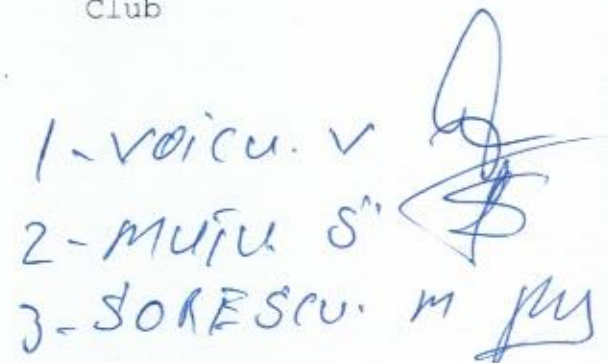 Club
1-VOiCU. V
2-MUȚU. S
3-SORESCU. M